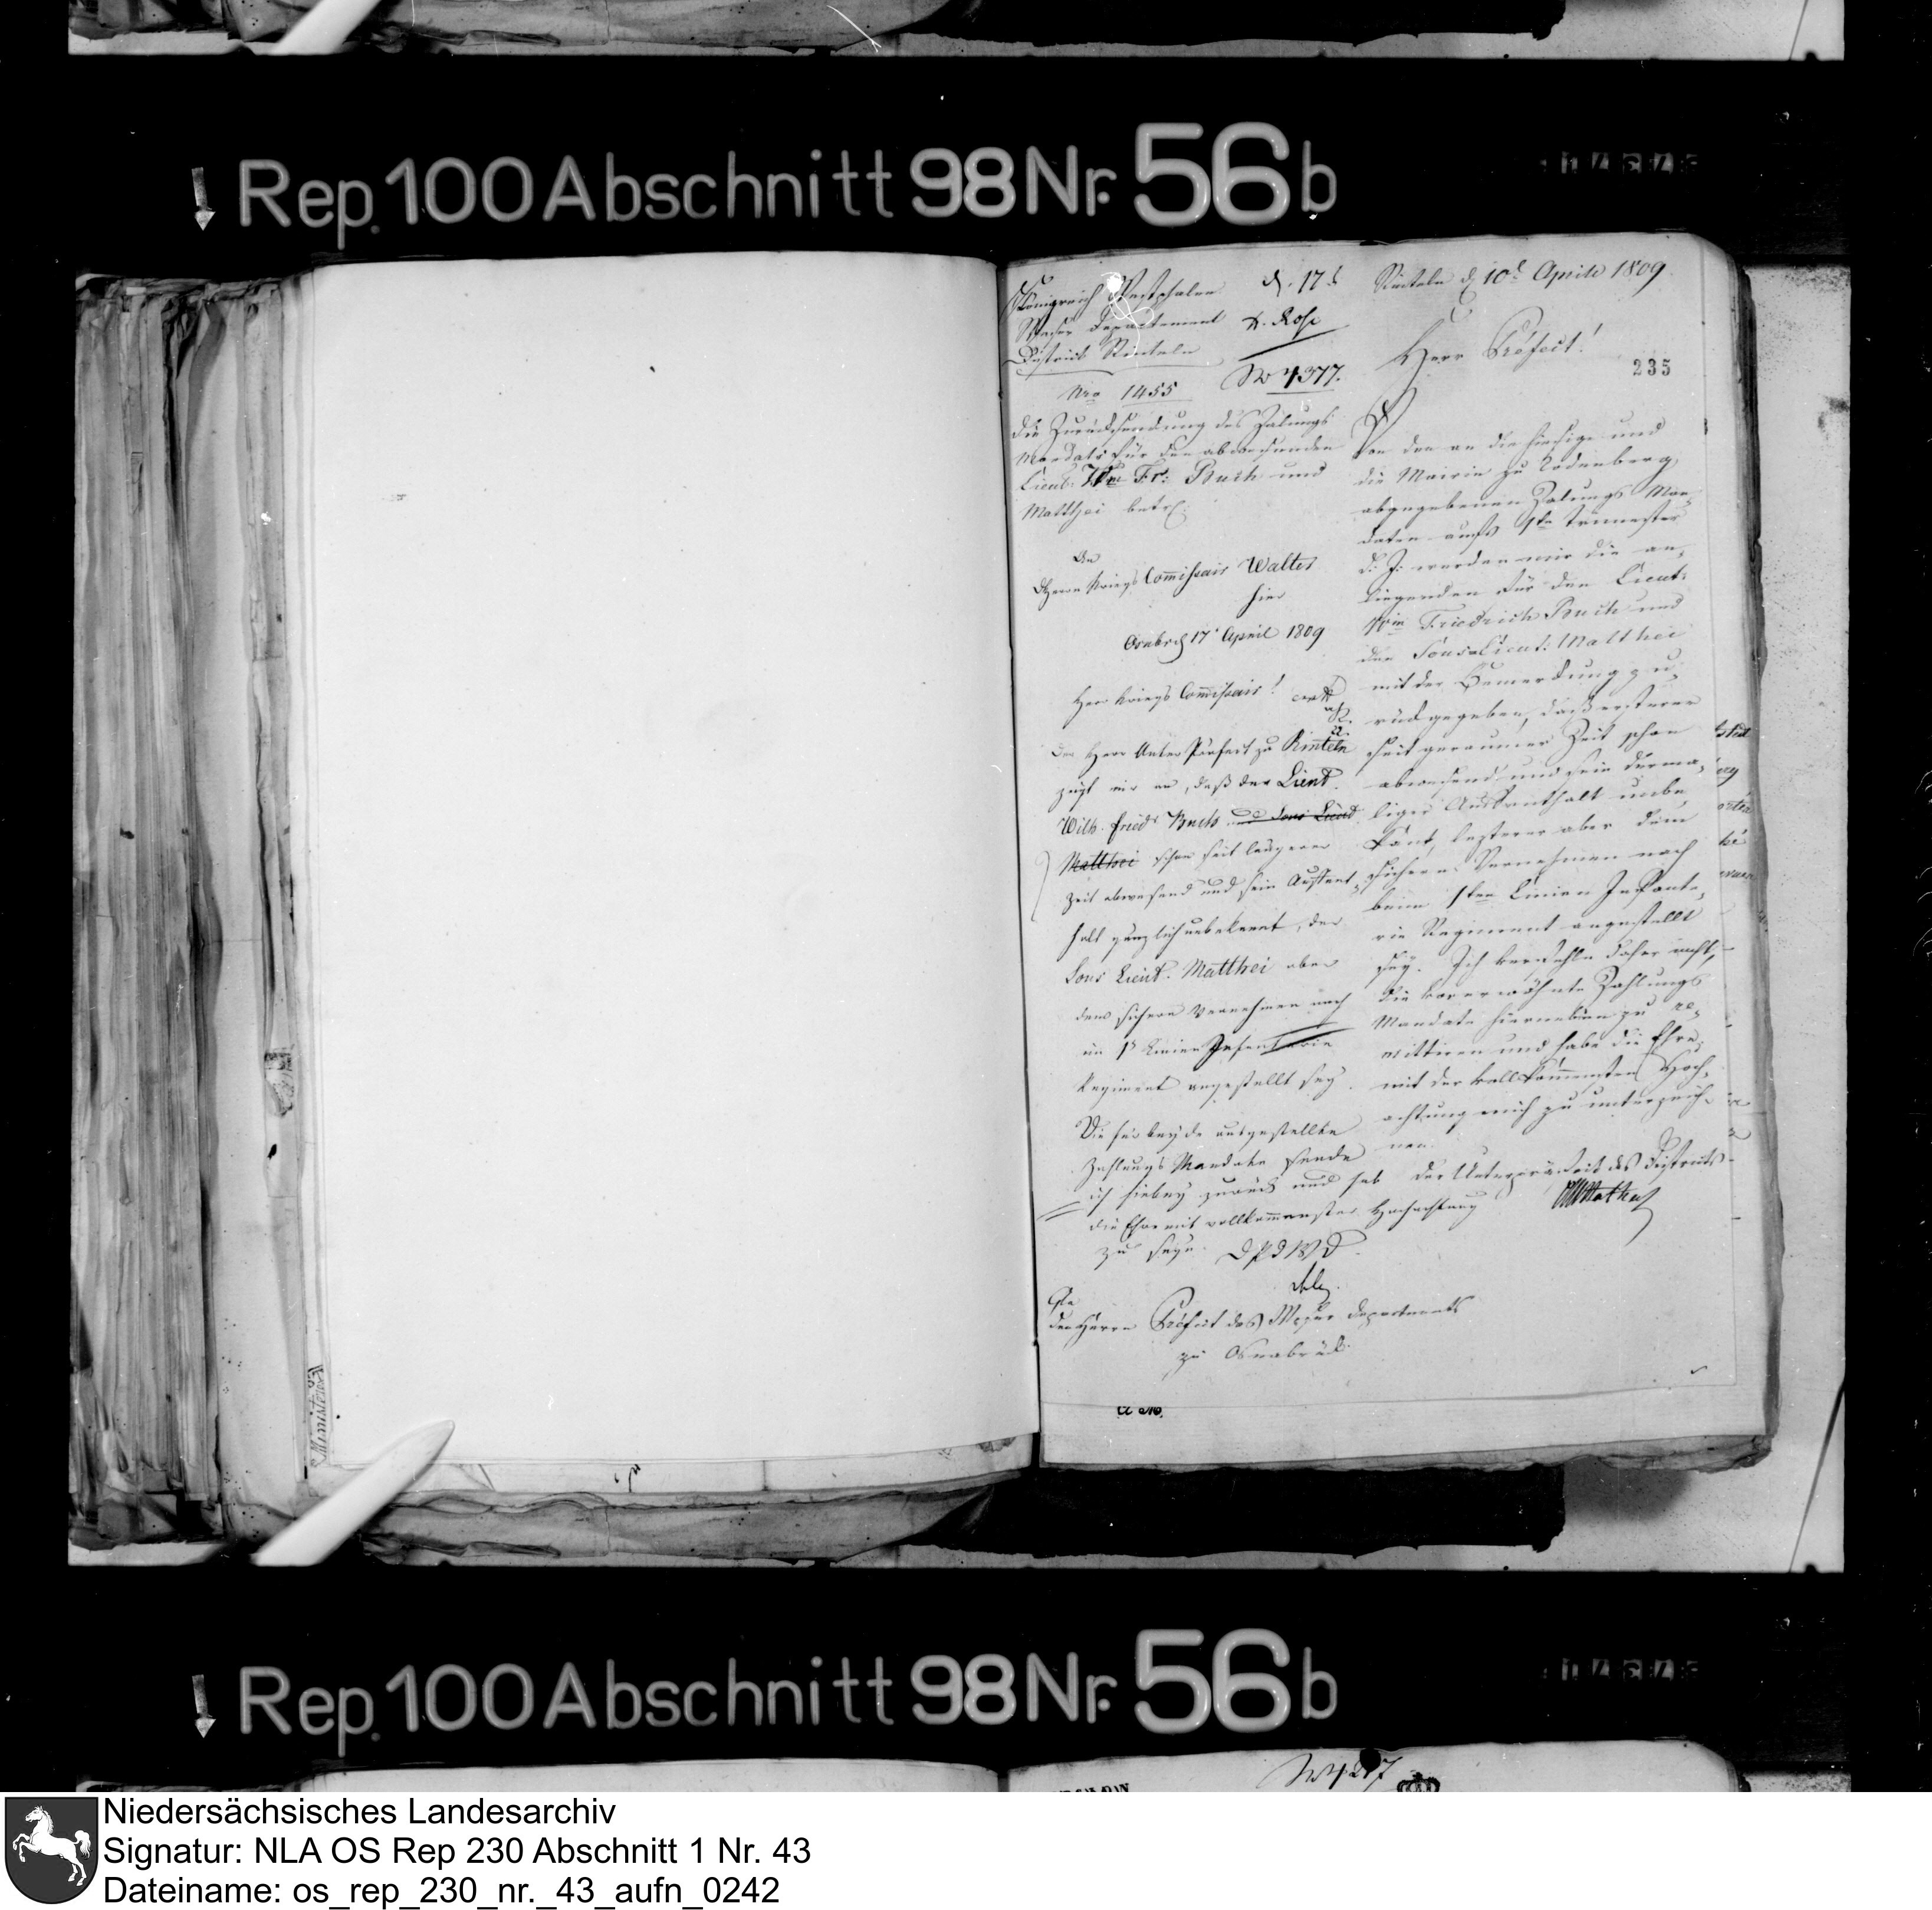 Rep. 100 Abschnitt 98 Nr. 56b
Königreich Westphalen
Weser Departement
District Rinteln
Nro 1455
d. 17t
H. Rose
No 4377.
Die Zurücksendung des Zalungs
Mandats für den abwesenden
Lieut. Wm Fr: Buch und
Matthei betr.
An
Herrn Kriegs Commissair Walter
hier
Osnabrch 17t April 1809
Herr Kriegs Commissair!
Der Herr Unter Präfect zu Rinteln
zeigt mir an, daß der Lieut.
Wilh. Friedr Buch und Sous Lieut
Matthei schon seit längerer
Zeit abwesend und sein Aufent
halt gänzlich unbekannt, der
Sous Lieut. Matthei aber
dem sichern Vernehmen nach
im 1t Linien Infanterie
Regiment angestellt sey.
Die für beyde ausgestellte
Zahlungs Mandate sende
ich hiebey zurück und hab
die Ehre mit vollkommenster Hochachtung
zu seyn. D P d W D
Rinteln d 10t April 1809
Herr Präfect!
235
Von den an die hiesige und
die Mairie zu Rodenberg
abgegebenen Zalungs Man-
daten aufs 1te Trimester
d. J. werden mir die an-
liegenden für den Lieut:
Wm Friedrich Buch und
den Sous-Lieut: Matthei
mit der Bemerkung zu-
rückgegeben, daß ersterer
seit geraumer Zeit schon
abwesend und sein derma-
liger Aufenthalt unbe-
kant, lezterer aber dem
sichern Vernehmen nach
beim 1ten Linien Infante-
rie Regiment angestellt
sey. Ich verfehle daher nicht,
die vorerwähnte Zahlungs
Mandate hierneben zu re-
mittiren und habe die Ehre,
mit der vollkommensten Hoch-
achtung mich zu unterzeich-
nen.
Der Unterpräfect des Districts
An
den Herrn Präfect des Weser Departements
zu Osnabrück
Rep. 100 Abschnitt 98 Nr. 56b
Niedersächsisches Landesarchiv
Signatur: NLA OS Rep 230 Abschnitt 1 Nr. 43
Dateiname: os_rep_230_nr._43_aufn_0242